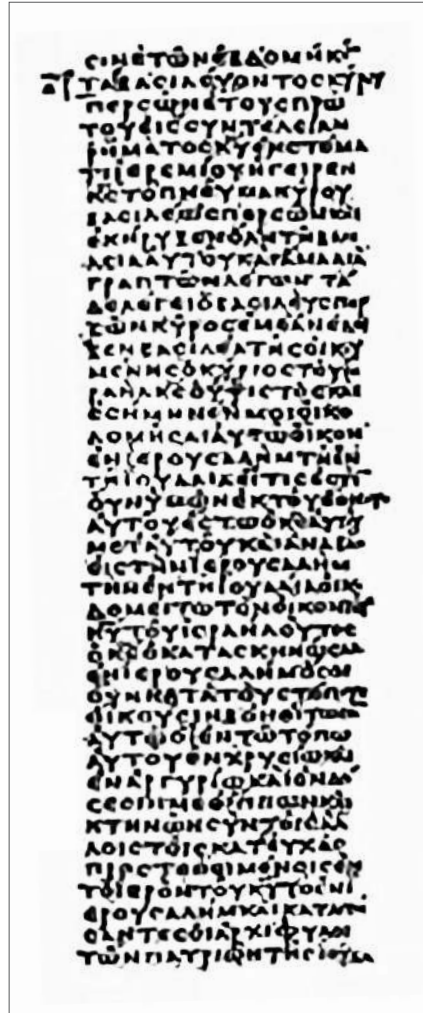 ϹΙΝΕΤΩΝΕΒΔΟΜΗΚΟ
ΤΑΒΑϹΙΛΕΥΟΝΤΟϹΚΥΡΟΥ
ΠΕΡϹΩΝΕΤΟΥϹΠΡΩ
ΤΟΥΕΙϹϹΥΝΤΕΛΕΙΑΝ
ΡΗΜΑΤΟϹΚΥΕΝϹΤΟΜΑ
ΤΙΙΕΡΕΜΙΟΥΗΓΕΙΡΕΝ
ΚϹΤΟΠΝΕΥΜΑΚΥΡΟΥ
ΒΑϹΙΛΕΩϹΠΕΡϹΩΝΚΑΙ
ΕΚΗΡΥΞΕΝΟΛΗΤΗΒΑϹΙ
ΛΕΙΑΑΥΤΟΥΚΑΙΑΜΑΔΙΑ
ΓΡΑΠΤΩΝΛΕΓΩΝΤΑ
ΔΕΛΕΓΕΙΟΒΑϹΙΛΕΥϹΠΕΡ
ϹΩΝΚΥΡΟϹΕΜΕΑΝΕΔΕΙ
ΞΕΝΒΑϹΙΛΕΑΤΗϹΟΙΚΟΥ
ΜΕΝΗϹΟΚΥΡΙΟϹΤΟΥΙϹ
ΡΑΗΛΚϹΟΥΨΙϹΤΟϹΚΑΙ
ΕϹΗΜΗΝΕΝΜΟΙΟΙΚΟ
ΔΟΜΗϹΑΙΑΥΤΩΟΙΚΟΝ
ΕΝΙΕΡΟΥϹΑΛΗΜΤΗΕΝ
ΤΗΙΟΥΔΑΙΑΕΙΤΙϹΕϹΤΙ
ΟΥΝΥΜΩΝΕΚΤΟΥΕΘΝΟΥϹ
ΑΥΤΟΥΕϹΤΩΟΚϹΑΥΤΟΥ
ΜΕΤΑΥΤΟΥΚΑΙΑΝΑΒΑϹ
ΕΙϹΤΗΝΙΕΡΟΥϹΑΛΗΜ
ΤΗΝΕΝΤΗΙΟΥΔΑΙΑΟΙΚΟ
ΔΟΜΕΙΤΩΤΟΝΟΙΚΟΝΤΟΥ
ΚΥΤΟΥΙϹΡΑΗΛΟΥΤΟϹ
ΟΚϹΟΚΑΤΑϹΚΗΝΩϹΑϹ
ΕΝΙΕΡΟΥϹΑΛΗΜΟϹΟΙ
ΟΥΝΚΑΤΑΤΟΥϹΤΟΠΟΥϹ
ΟΙΚΟΥϹΙΝΒΟΗΘΕΙΤΩϹΑΝ
ΑΥΤΩΟΙΕΝΤΩΤΟΠΩ
ΑΥΤΟΥΕΝΧΡΥϹΙΩΚΑΙ
ΕΝΑΡΓΥΡΙΩΚΑΙΕΝΔΟ
ϹΕϹΙΝΜΕΘΙΠΠΩΝΚΑΙ
ΚΤΗΝΩΝϹΥΝΤΟΙϹΑΛ
ΛΟΙϹΤΟΙϹΚΑΤΕΥΧΑϹ
ΠΡΟϹΤΕΘΕΙΜΕΝΟΙϹΕΙϹ
ΤΟΙΕΡΟΝΤΟΥΚΥΤΟΕΝΙ
ΕΡΟΥϹΑΛΗΜΚΑΙΚΑΤΑϹΤΗ
ϹΑΝΤΕϹΟΙΑΡΧΙΦΥΛΟΙ
ΤΩΝΠΑΤΡΙΩΝΤΗϹΙΟΥΔΑ